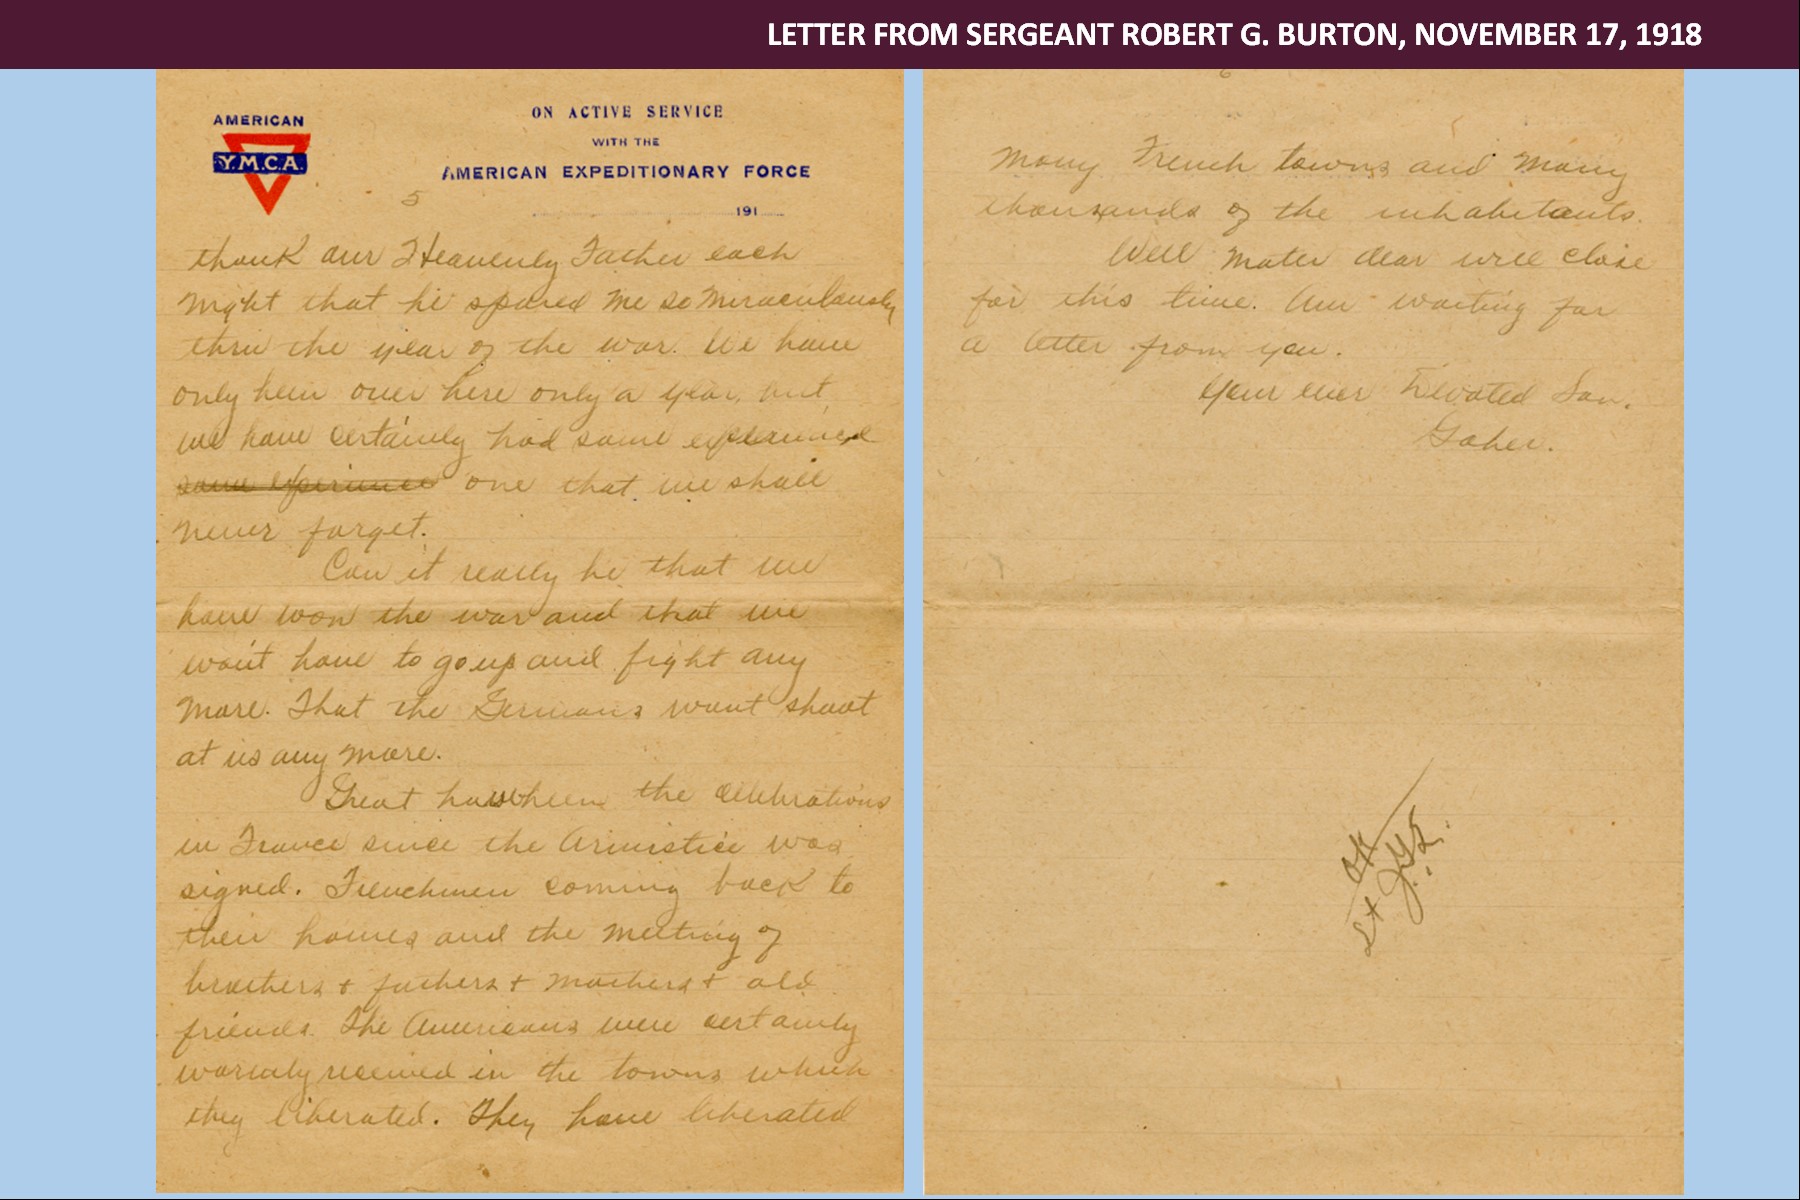 LETTER FROM SERGEANT ROBERT G. BURTON, NOVEMBER 17, 1918
AMERICAN
Y.M.C.A.
ON ACTIVE SERVICE
WITH THE
AMERICAN EXPEDITIONARY FORCE
191
5
thank our Heavenly Father each
night that he spared me so miraculously
thru the year of the war. We have
only been over here only a year, but
we have certainly had some experience
some experience one that we shall
never forget.
Can it really be that we
have won the war and that we
won't have to go up and fight any
more. That the Germans wont shoot
at us any more.
Great have been the celebrations
in France since the Armistice was
signed. Frenchmen coming back to
their homes and the meeting of
brothers + fathers + mothers + old
friends. The Americans were certainly
warmly received in the towns which
they liberated. They have liberated
6
many French towns and many
thousands of the inhabitants.
Well mater dear will close
for this time. Am waiting for
a letter from you.
Your ever Devoted Son.
Goher.
OK